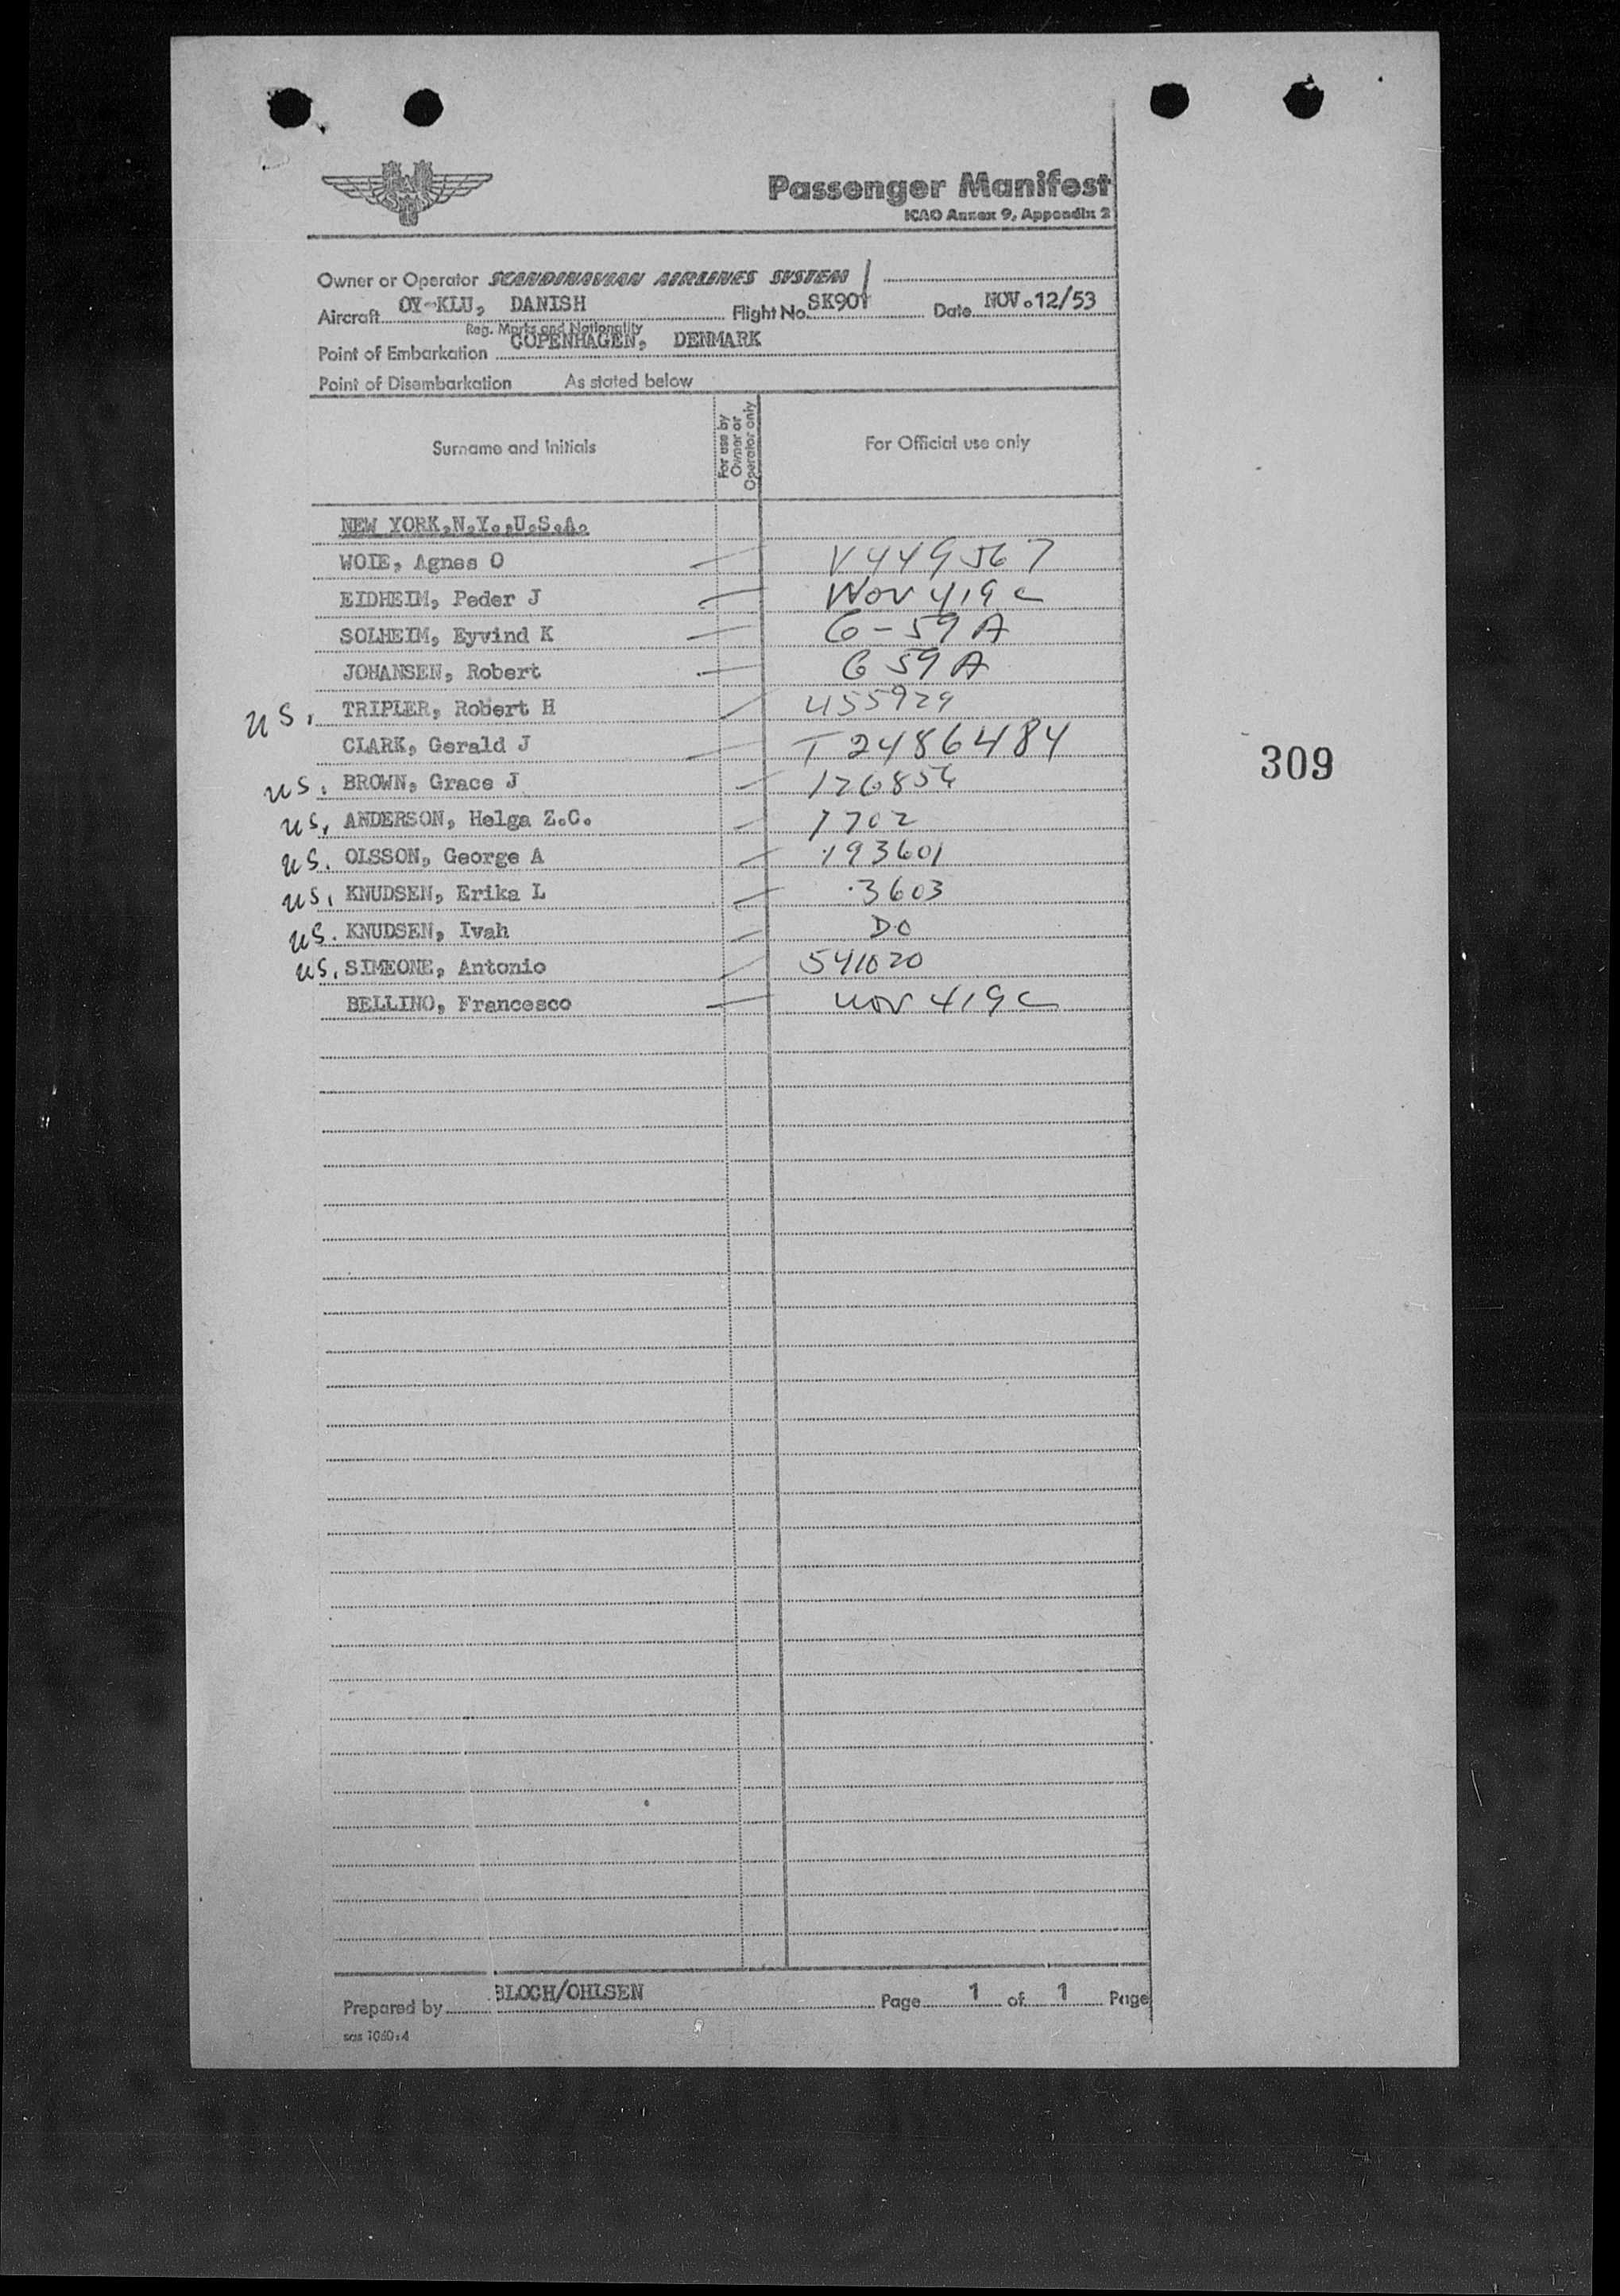 Passenger Manifest
ICAO Annex 9, Appendix 2
Owner or Operator SCANDINAVIAN AIRLINES SYSTEM
Aircraft OY-KLU, DANISH Flight No. SK901 Date NOV.12/53
Reg. Marks and Nationality
Point of Embarkation COPENHAGEN, DENMARK
Point of Disembarkation As stated below
Surname and Initials For use by Owner or Operator only For Official use only
NEW YORK,N.Y.,U.S.A.
WOIE, Agnes O V449567
EIDHEIM, Peder J Nov 419c
SOLHEIM, Eyvind K G-59A
JOHANSEN, Robert G59A
US. TRIPLER, Robert H 455929
CLARK, Gerald J T2486484
309
US. BROWN, Grace J 126856
US. ANDERSON, Helga Z.C. 1702
US. OLSSON, George A 193601
US. KNUDSEN, Erika L 3603
US. KNUDSEN, Ivah DO
US. SIMEONE, Antonio 541020
BELLINO, Francesco Nov 419c
Prepared by BLOCH/OHLSEN Page 1 of 1 Page
sas 1060:4